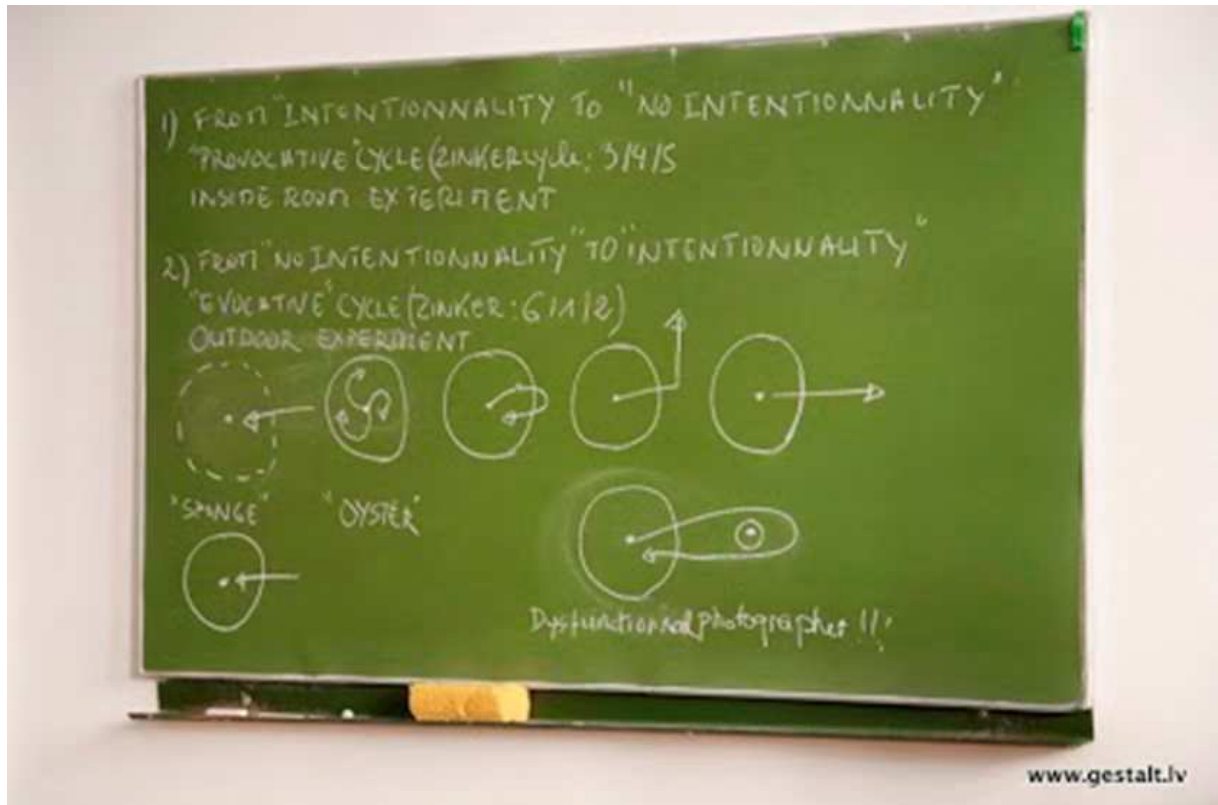 1) FROM "INTENTIONNALITY TO "NO INTENTIONNALITY"
"PROVOCATIVE" CYCLE (ZINKER cycle: 3/4/5
INSIDE ROOM EXPERIMENT
2) FROM "NO INTENTIONNALITY" TO "INTENTIONNALITY"
"EVOCATIVE" CYCLE (ZINKER: 6/1/2)
OUTDOOR EXPERIMENT
"SPONGE" "OYSTER"
Dysfunctional photographer !!!
www.gestalt.lv